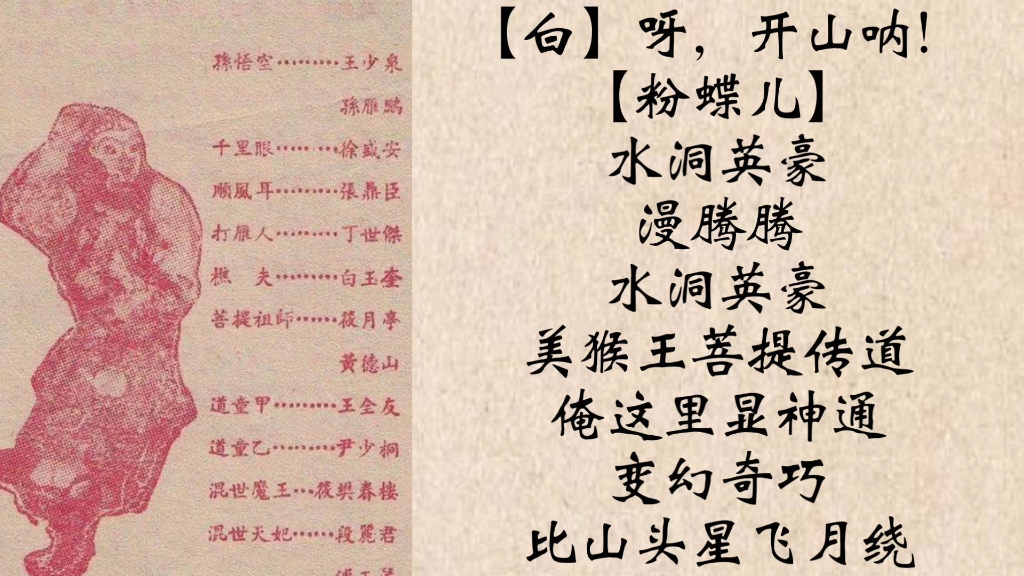 孫悟空………王少泉
孫雁鸝
千里眼………徐盛安
順風耳………張鼎臣
打雁人………丁世傑
樵 夫………白玉奎
菩提祖師……筱月亭
黃德山
道童甲………王全友
道童乙………尹少桐
混世魔王…筱樊春樓
混世天妃……段麗君
【白】呀，开山呐！
【粉蝶儿】
水洞英豪
漫腾腾
水洞英豪
美猴王菩提传道
俺这里显神通
变幻奇巧
比山头星飞月绕